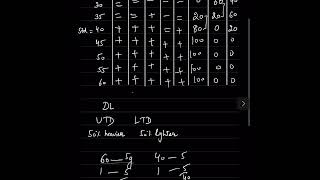 30 = = - - - 0 60 40
35 + = = - - 20 20 60
Std = 40 + + + = + 80 0 20
45 + + + + + 100 0 0
50 + + + + + 100 0 0
55 + + + + + 100 0 0
60 + + + + + 100 0 0
DL
UTD LTD
50% heavier 50% lighter
60 — 5g 40 — 5
1 — 5 1 — 5
60 40